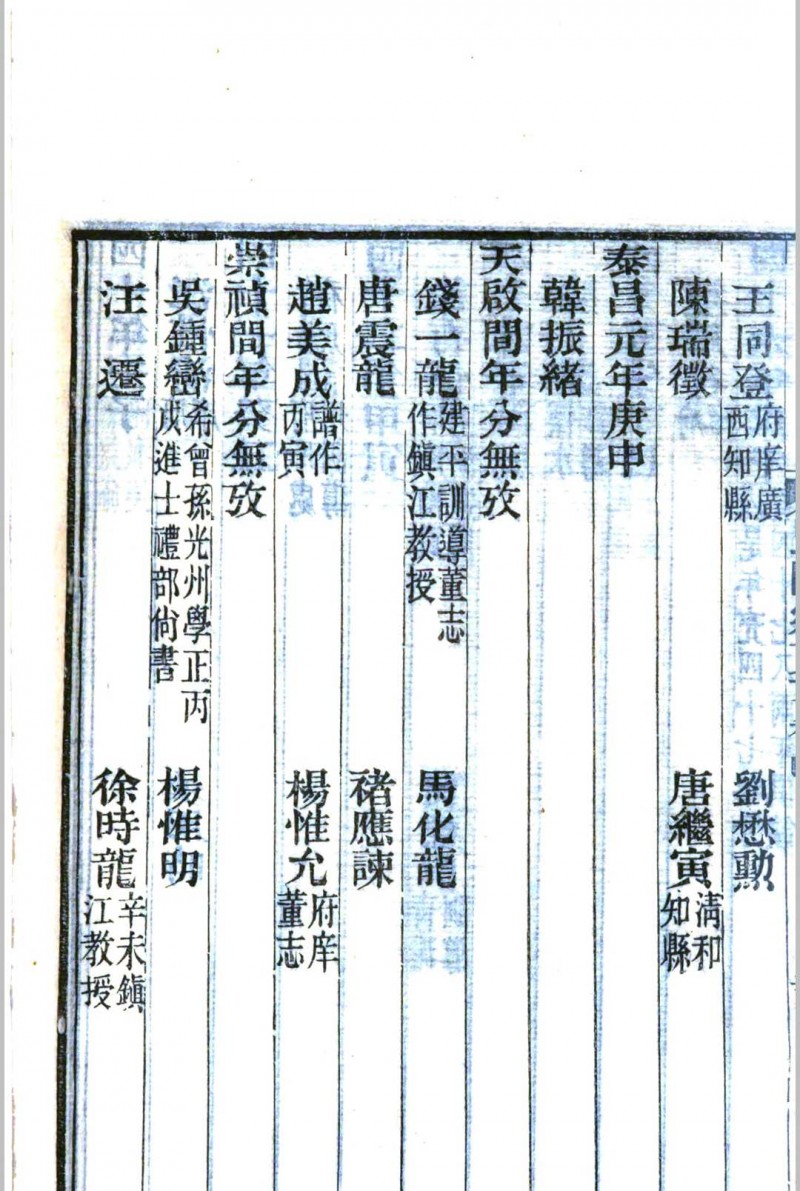 王同登府庠廣西知縣　劉懋勳
陳瑞徵　唐繼寅清和知縣
泰昌元年庚申
韓振緒
天啟間年分無攷
錢一龍建平訓導董志作鎮江教授　馬化龍
唐震龍　褚應諫
趙美成譜作丙寅　楊惟允府庠董志
崇禎間年分無攷
吳鍾巒希曾孫光州學正丙戌進士禮部尙書　楊惟明
汪遷　徐時龍辛未鎮江教授